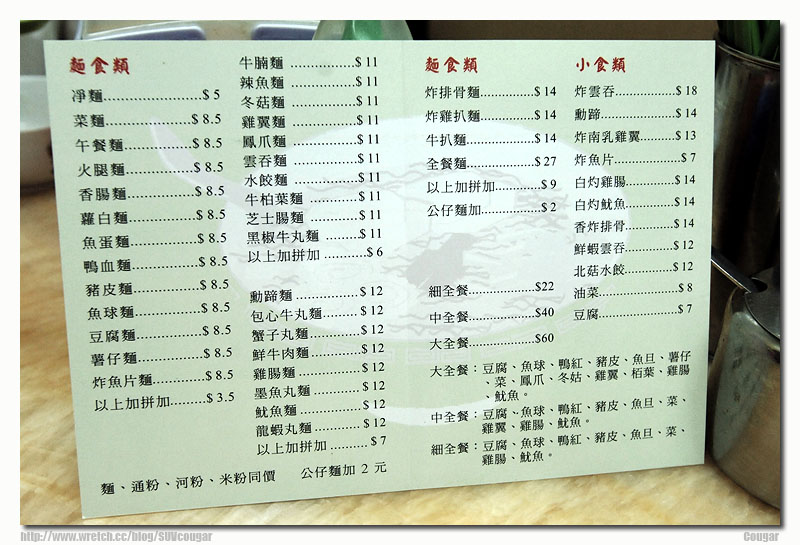 麵食類
凈麵..........................$ 5
菜麵......................$ 8.5
午餐麵..................$ 8.5
火腿麵..................$ 8.5
香腸麵..................$ 8.5
蘿白麵..................$ 8.5
魚蛋麵..................$ 8.5
鴨血麵..................$ 8.5
豬皮麵..................$ 8.5
魚球麵..................$ 8.5
豆腐麵..................$ 8.5
薯仔麵..................$ 8.5
炸魚片麵..............$ 8.5
以上加拼加.........$ 3.5
牛腩麵 ................$ 11
辣魚麵 ................$ 11
冬菇麵 ................$ 11
雞翼麵 ................$ 11
鳳爪麵 ................$ 11
雲吞麵 ................$ 11
水餃麵 ................$ 11
牛柏葉麵 ............$ 11
芝士腸麵 ............$ 11
黑椒牛丸麵 ........$ 11
以上加拼加 ..........$ 6
勳蹄麵 ................$ 12
包心牛丸麵..........$ 12
蟹子丸麵..............$ 12
鮮牛肉麵..............$ 12
雞腸麵..................$ 12
墨魚丸麵..............$ 12
魷魚麵..................$ 12
龍蝦丸麵..............$ 12
以上加拼加 ..........$ 7
麵、通粉、河粉、米粉同價 公仔麵加 2 元
麵食類
炸排骨麵..............$ 14
炸雞扒麵..............$ 14
牛扒麵..................$ 14
全餐麵..................$ 27
以上加拼加............$ 9
公仔麵加...............$ 2
細全餐..................$22
中全餐..................$40
大全餐..................$60
小食類
炸雲吞................$ 18
勳蹄....................$ 14
炸南乳雞翼.........$ 13
炸魚片..................$ 7
白灼雞腸............$ 14
白灼魷魚............$ 14
香炸排骨............$ 14
鮮蝦雲吞............$ 12
北菇水餃............$ 12
油菜......................$ 8
豆腐......................$ 7
大全餐：豆腐、魚球、鴨紅、豬皮、魚旦、薯仔
、菜、鳳爪、冬姑、雞翼、栢葉、雞腸
、魷魚。
中全餐：豆腐、魚球、鴨紅、豬皮、魚旦、菜、
雞翼、雞腸、魷魚。
細全餐：豆腐、魚球、鴨紅、豬皮、魚旦、菜、
雞腸、魷魚。
http://www.wretch.cc/blog/SUVcougar
Cougar